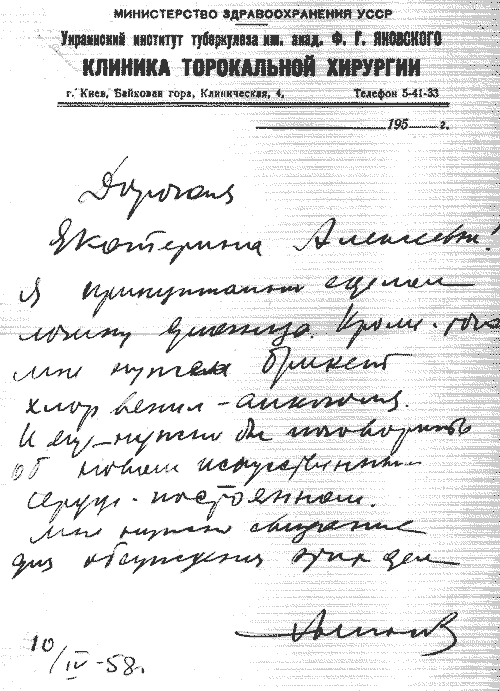 МИНИСТЕРСТВО ЗДРАВООХРАНЕНИЯ УССР
Украинский институт туберкулеза им. акад. Ф. Г. ЯНОВСКОГО
КЛИНИКА ТОРОКАЛЬНОЙ ХИРУРГИИ
г. Киев, Байковая гора, Клиническая, 4. Телефон 5-41-33
195 г.
Дорогая
Екатерина Алексеевна!
Я принципиально сделал
Кроме того
мне нужен брикет
хлор венил-алкоголя.
И еще нужно бы поговорить
об новом искусственном
сердце - постоянном.
Мне нужно свидание
для обсуждения этих дел
Амосов
10/IV-58.